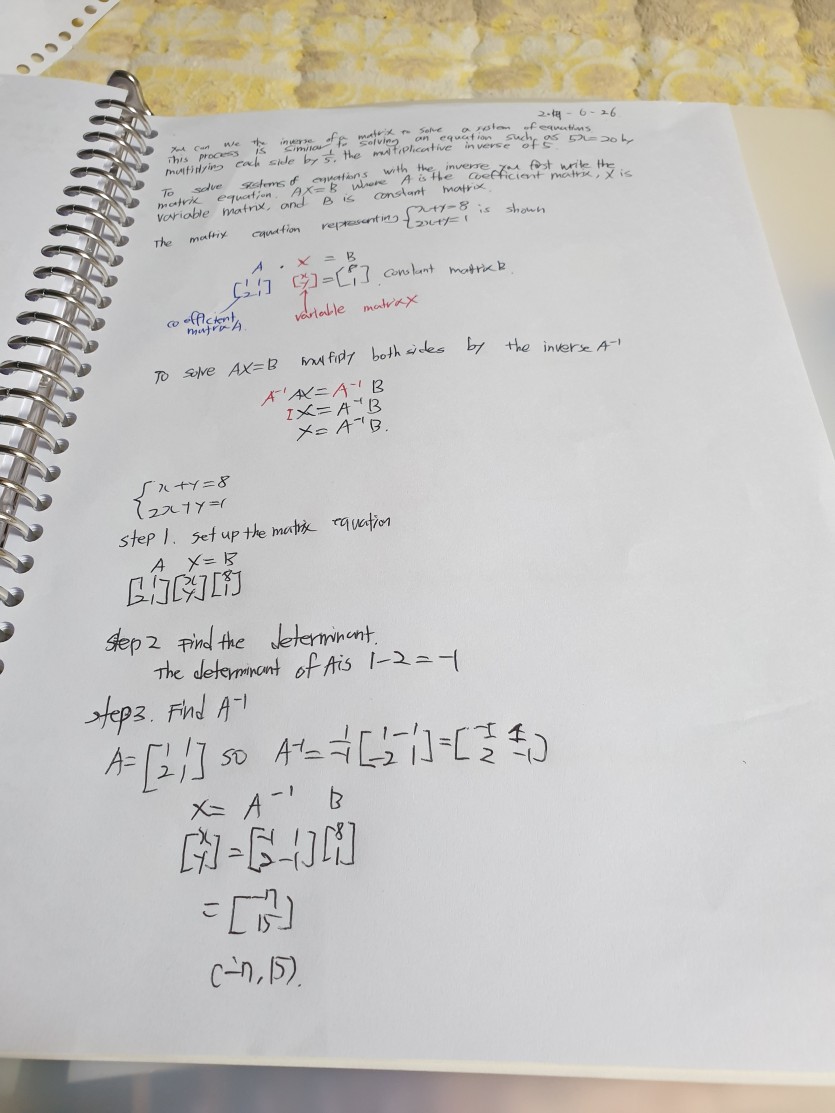 - 6 - 26
You can use the inverse of a matrix to solve a system of equations
This process is similar to solving an equation such as 5x=20 by
multiplying each side by 1/5, the multiplicative inverse of 5.
To solve systems of equations with the inverse you first write the
matrix equation AX=B where A is the coefficient matrix, X is
variable matrix, and B is constant matrix.
The matrix equation representing {x+y=8 2x+y=1 is shown
A · X = B
[1 1 2 1] [x y] = [8 1] constant matrix B.
coefficient matrix A
variable matrix X
To solve AX=B multiply both sides by the inverse A⁻¹
A⁻¹ AX = A⁻¹ B
IX = A⁻¹B
X = A⁻¹B.
{ x+y=8
2x+y=1
step 1. set up the matrix equation
A X = B
[1 1 2 1] [x y] [8 1]
step 2 Find the determinant.
The determinant of A is 1-2=-1
step 3. Find A⁻¹
A= [1 1 2 1] so A⁻¹= 1/-1 [1 -1 -2 1] = [-1 1 2 -1]
X= A⁻¹ B
[x y] = [-1 1 2 -1] [8 1]
= [-7 15]
(-7, 15).